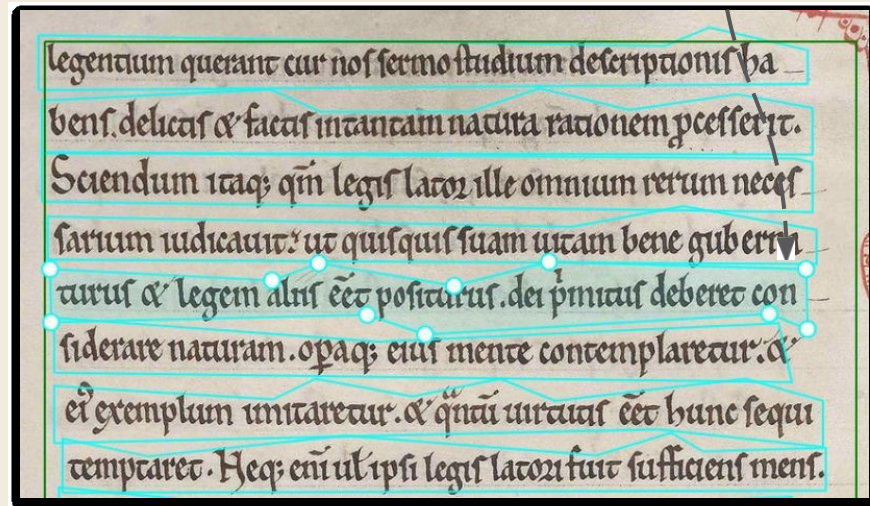 legentium querant cur nos sermo studium descriptionis ha
bens. delictis & factis intantam natura rationem ꝓcesserit.
Sciendum itaqꝫ qm̄ legis lator ille omnium rerum neces
sarium iudicauit: ut quisquis suam uitam bene guberna
turus & legem aliis eēt positurus. dei pͥmitus deberet con
siderare naturam. oꝑaqꝫ eius mente contemplaretur. &
ei exemplum imitaretur. & qͣntū uirtutis eēt hunc sequi
temptaret. Neqꝫ enī ul ipsi legis latori fuit sufficiens mens.